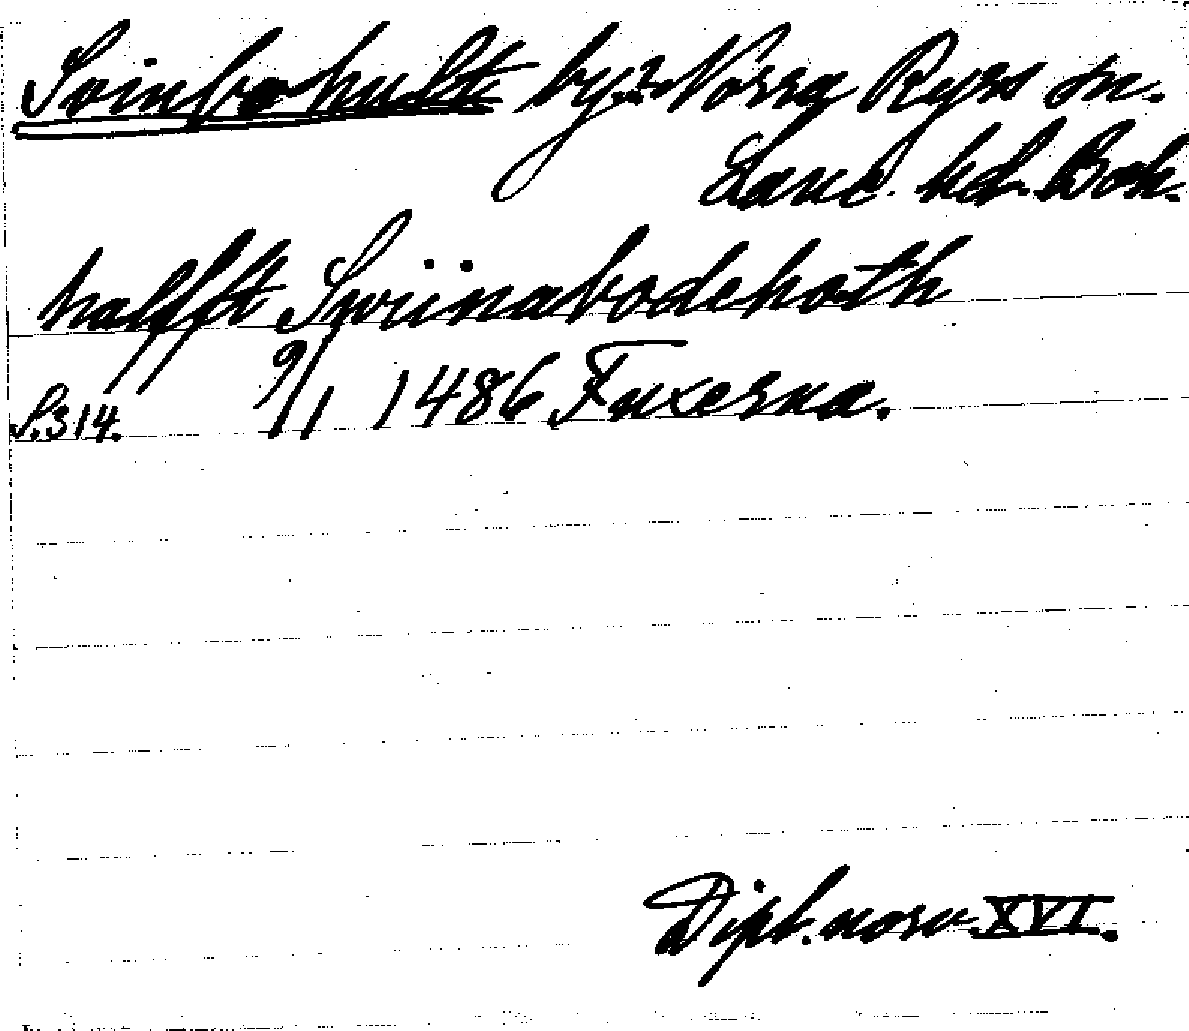 Svinbohult by? Norra Ryrs sn.
Lane hd. Boh.
halfft Swiinabodehoth
S. 314. 9/1 1486 Fuxerna.
Dipl. norv. XVI.